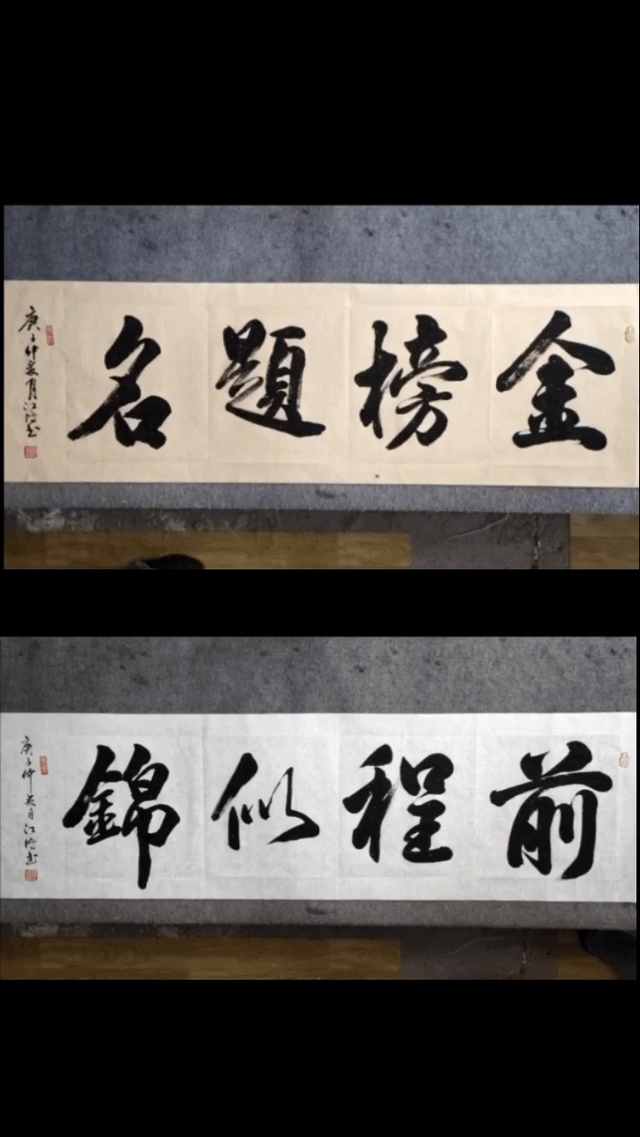 金榜題名
庚子仲夏月江
前程似錦
庚子仲夏月江